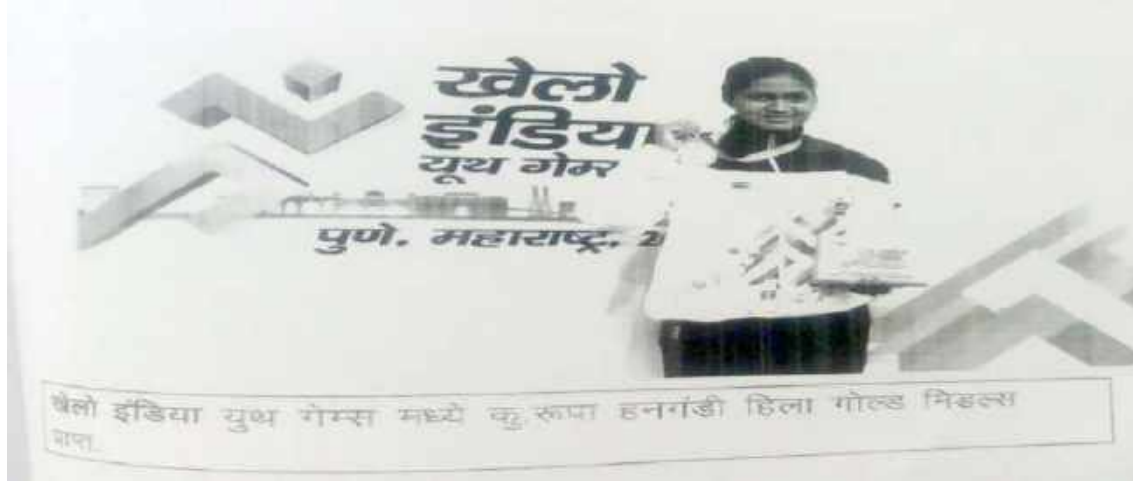 खेलो
इंडिया
यूथ गेम्स
पुणे, महाराष्ट्र, 2
खेलो इंडिया युथ गेम्स मध्ये कु. रूपा हनगंडी हिला गोल्ड मिडल्स
प्राप्त.